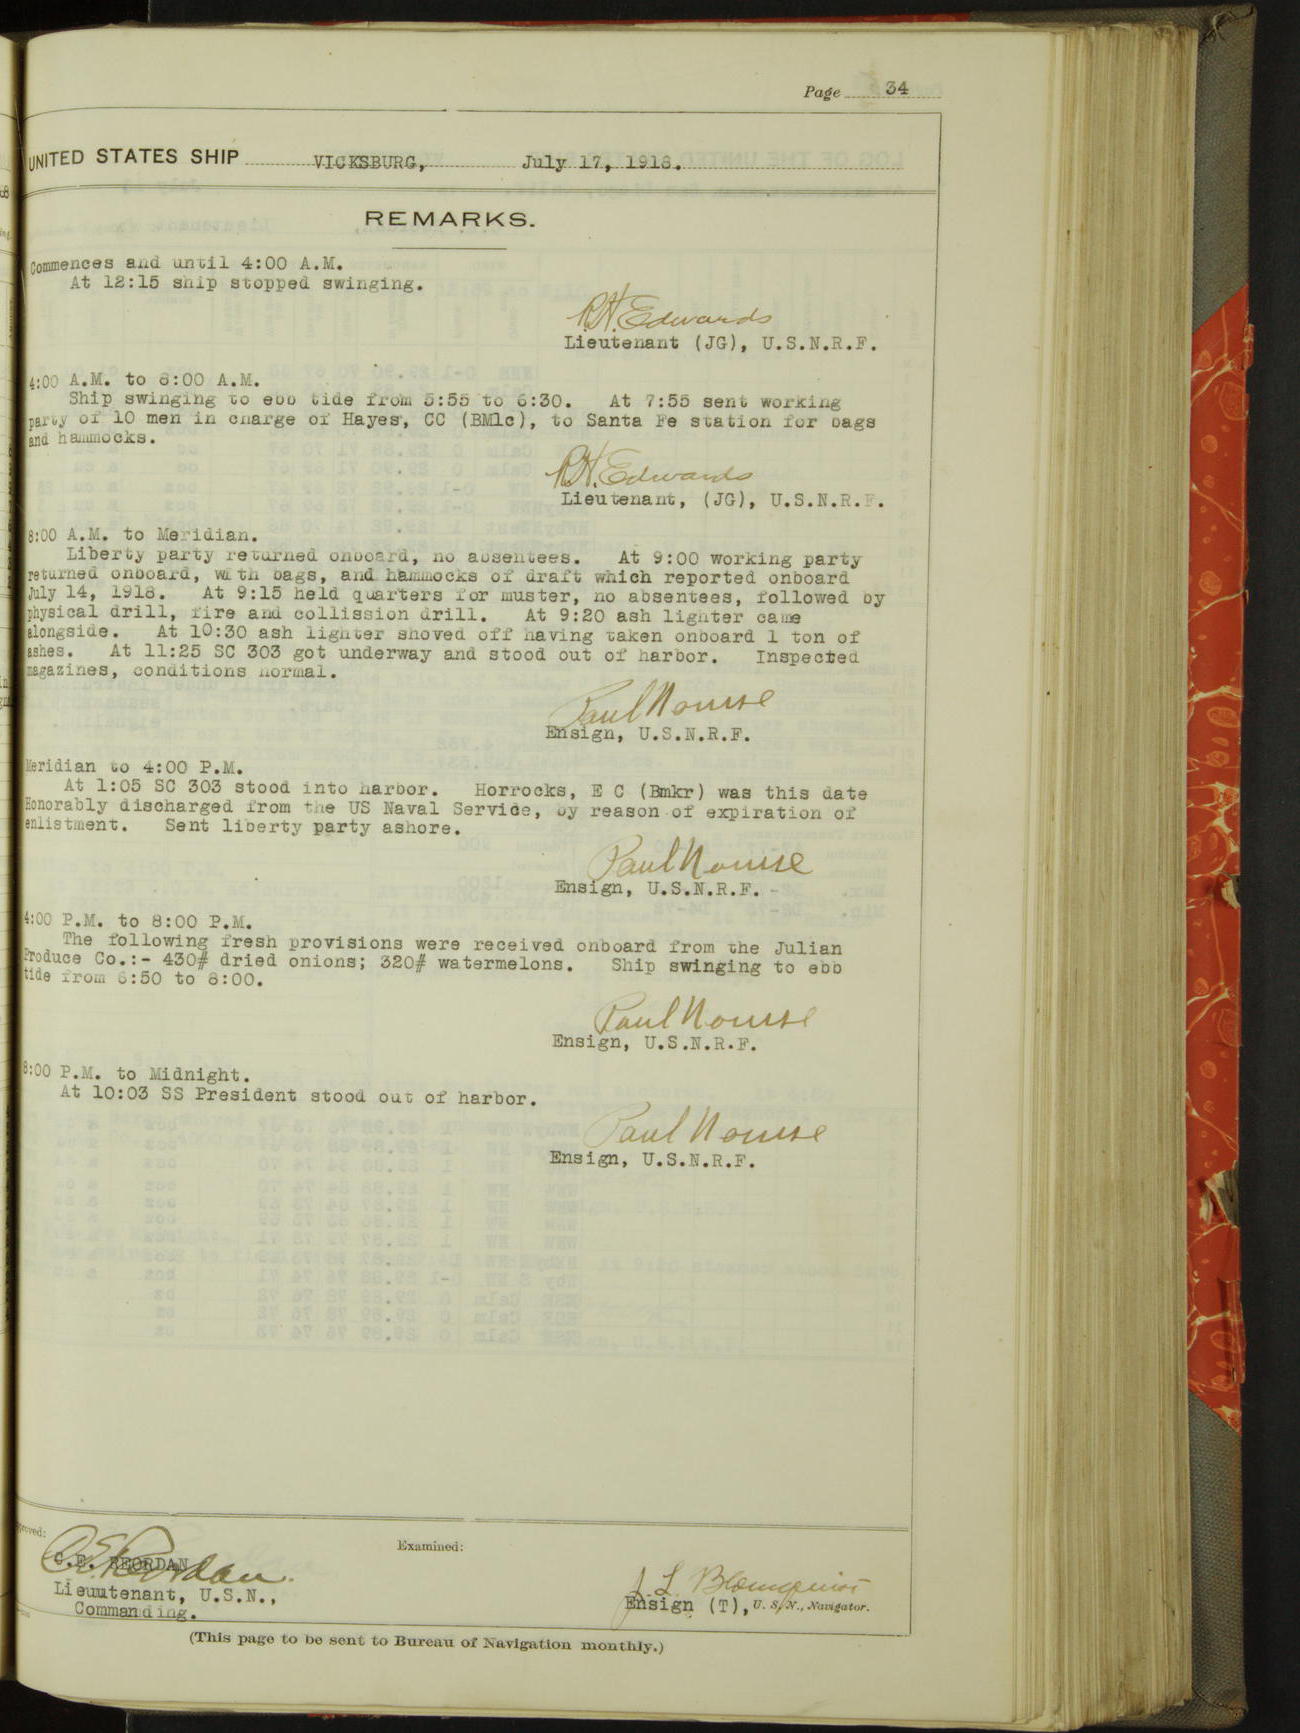 Page 34
UNITED STATES SHIP VICKSBURG, July 17, 1918.
REMARKS.
Commences and until 4:00 A.M.
At 12:15 ship stopped swinging.
R.H. Edwards
Lieutenant (JG), U.S.N.R.F.
4:00 A.M. to 8:00 A.M.
Ship swinging to ebb tide from 5:55 to 6:30. At 7:55 sent working
party of 10 men in charge of Hayes, CC (BM1c), to Santa Fe station for bags
and hammocks.
R.H. Edwards
Lieutenant, (JG), U.S.N.R.F.
8:00 A.M. to Meridian.
Liberty party returned onboard, no absentees. At 9:00 working party
returned onboard, with bags, and hammocks of draft which reported onboard
July 14, 1918. At 9:15 held quarters for muster, no absentees, followed by
physical drill, fire and collission drill. At 9:20 ash lighter came
alongside. At 10:30 ash lighter shoved off having taken onboard 1 ton of
ashes. At 11:25 SC 303 got underway and stood out of harbor. Inspected
magazines, conditions normal.
Paul Nourse
Ensign, U.S.N.R.F.
Meridian to 4:00 P.M.
At 1:05 SC 303 stood into harbor. Horrocks, E C (Bmkr) was this date
Honorably discharged from the US Naval Service, by reason of expiration of
enlistment. Sent liberty party ashore.
Paul Nourse
Ensign, U.S.N.R.F.
4:00 P.M. to 8:00 P.M.
The following fresh provisions were received onboard from the Julian
Produce Co.:- 430# dried onions; 320# watermelons. Ship swinging to ebb
tide from 6:50 to 8:00.
Paul Nourse
Ensign, U.S.N.R.F.
8:00 P.M. to Midnight.
At 10:03 SS President stood out of harbor.
Paul Nourse
Ensign, U.S.N.R.F.
Examined:
C.E. REORDAN
Lieuutenant, U.S.N.,
Commanding.
J. L. Blomquist
Ensign (T), U. S. N., Navigator.
(This page to be sent to Bureau of Navigation monthly.)